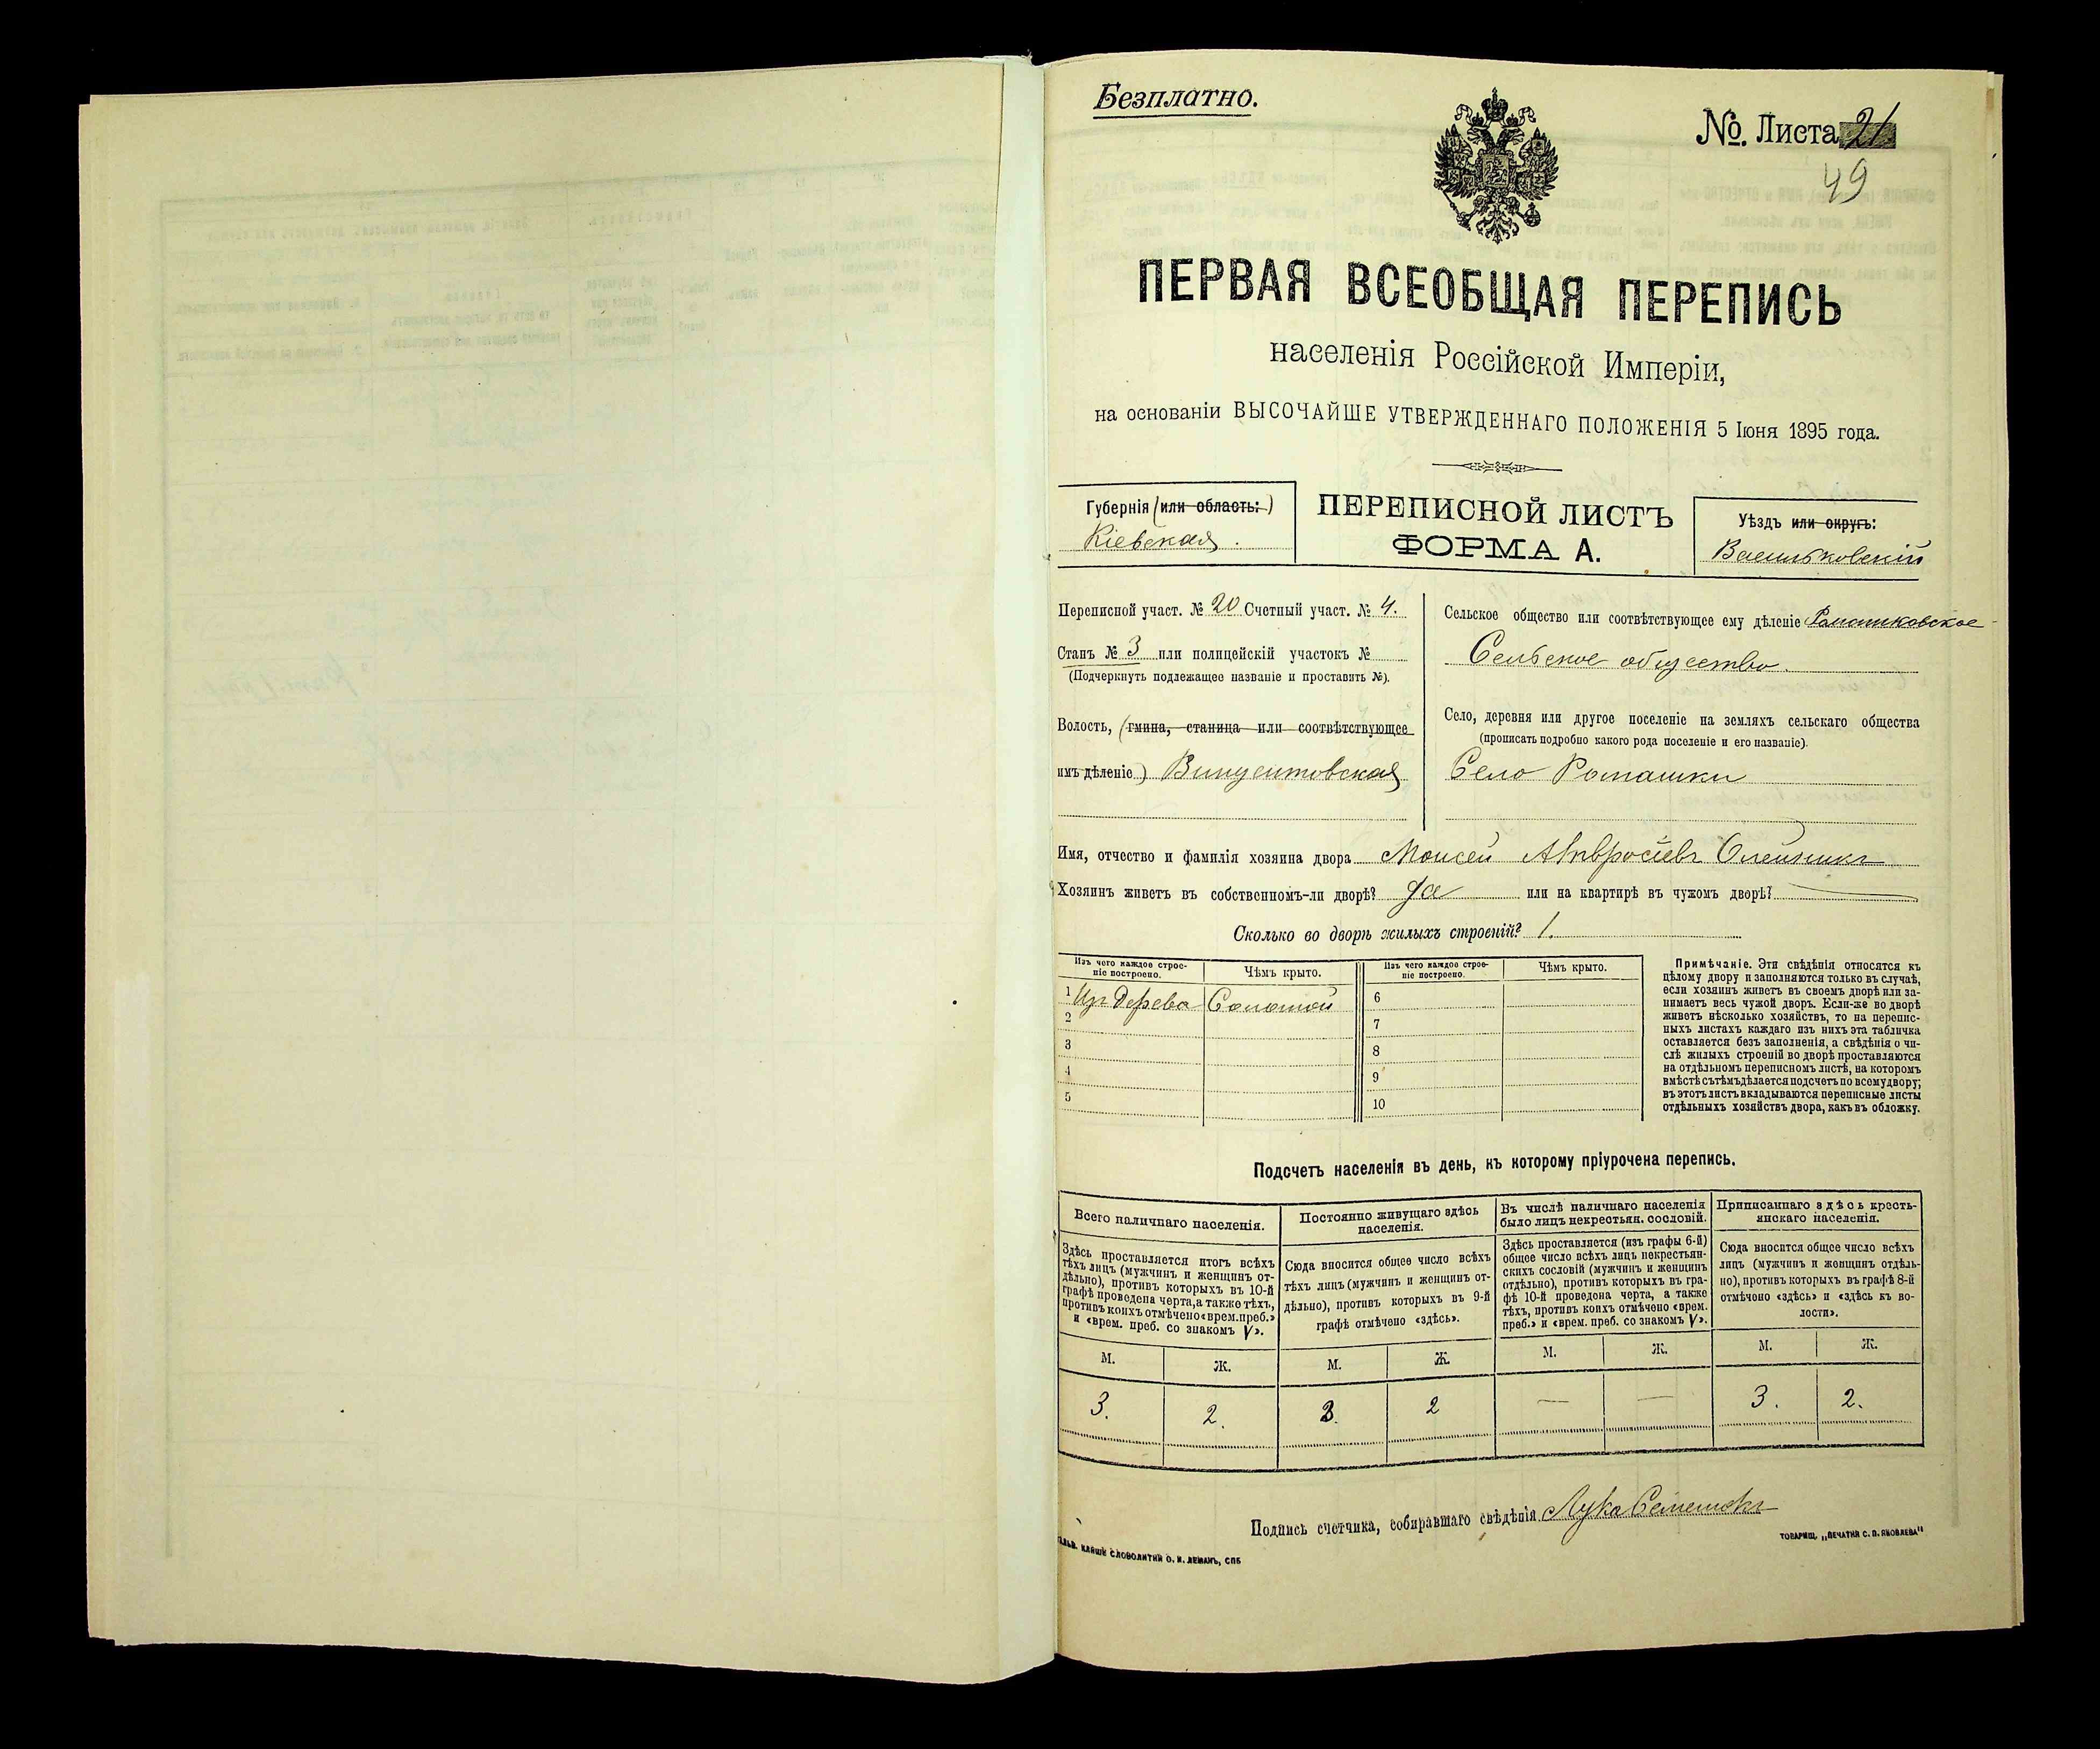 Безплатно.
№. Листа 21
49
ПЕРВАЯ ВСЕОБЩАЯ ПЕРЕПИСЬ
населенія Россійской Имперіи,
на основаніи ВЫСОЧАЙШЕ УТВЕРЖДЕННАГО ПОЛОЖЕНІЯ 5 Іюня 1895 года.
Губернія (или область:)
Кіевская.
ПЕРЕПИСНОЙ ЛИСТЪ
ФОРМА А.
Уѣздъ или округъ:
Васильковскій
Переписной участ. № 20 Счетный участ. № 4.
Станъ № 3 или полицейскій участокъ №
(Подчеркнуть подлежащее названіе и проставить №).
Волость, (гмина, станица или соотвѣтствующее
имъ дѣленіе) Винцентовская
Сельское общество или соотвѣтствующее ему дѣленіе Ромашковское
Сельское общество.
Село, деревня или другое поселеніе на земляхъ сельскаго общества
(прописать подробно какого рода поселеніе и его названіе).
Село Ромашки
Имя, отчество и фамилія хозяина двора Моисей Амвросіевъ Олейникъ
Хозяинъ живетъ въ собственномъ-ли дворѣ? Да или на квартирѣ въ чужомъ дворѣ?
Сколько во дворѣ жилыхъ строеній? 1.
Изъ чего каждое строе-
ніе построено.
Чѣмъ крыто.
Изъ чего каждое строе-
ніе построено.
Чѣмъ крыто.
1 Изъ дерева Соломой
2
3
4
5
6
7
8
9
10
Примѣчаніе. Эти свѣдѣнія относятся къ
цѣлому двору и заполняются только въ случаѣ,
если хозяинъ живетъ въ своемъ дворѣ или за-
нимаетъ весь чужой дворъ. Если-же во дворѣ
живетъ нѣсколько хозяйствъ, то на перепис-
ныхъ листахъ каждаго изъ нихъ эта табличка
оставляется безъ заполненія, а свѣдѣнія о чи-
слѣ жилыхъ строеній во дворѣ проставляются
на отдѣльномъ переписномъ листѣ, на которомъ
вмѣстѣ съ тѣмъ дѣлается подсчетъ по всему двору;
въ этотъ листъ вкладываются переписные листы
отдѣльныхъ хозяйствъ двора, какъ въ обложку.
Подсчетъ населенія въ день, къ которому пріурочена перепись.
Всего наличнаго населенія.
Здѣсь проставляется итогъ всѣхъ
тѣхъ лицъ (мужчинъ и женщинъ от-
дѣльно), противъ которыхъ въ 10-й
графѣ проведена черта, а также тѣхъ,
противъ коихъ отмѣчено «врем. преб.»
и «врем. преб. со знакомъ V».
Постоянно живущаго здѣсь
населенія.
Сюда вносится общее число всѣхъ
тѣхъ лицъ (мужчинъ и женщинъ от-
дѣльно), противъ которыхъ въ 9-й
графѣ отмѣчено «здѣсь».
Въ числѣ наличнаго населенія
было лицъ некрестьян. сословій.
Здѣсь проставляется (изъ графы 6-й)
общее число всѣхъ лицъ некрестьян-
скихъ сословій (мужчинъ и женщинъ
отдѣльно), противъ которыхъ въ гра-
фѣ 10-й проведена черта, а также
тѣхъ, противъ коихъ отмѣчено «врем.
преб.» и «врем. преб. со знакомъ V».
Приписаннаго здѣсь кресть-
янскаго населенія.
Сюда вносится общее число всѣхъ
лицъ (мужчинъ и женщинъ отдѣль-
но), противъ которыхъ въ графѣ 8-й
отмѣчено «здѣсь» и «здѣсь къ во-
лости».
М. Ж. М. Ж. М. Ж. М. Ж.
3. 2. 3. 2 — — 3. 2.
Подпись счетчика, собиравшаго свѣдѣнія Лука
КЛИШЕ СЛОВОЛИТНИ О. И. ЛЕМАНЪ, СПБ
ТОВАРИЩ. „ПЕЧАТНЯ С. П. ЯКОВЛЕВА"